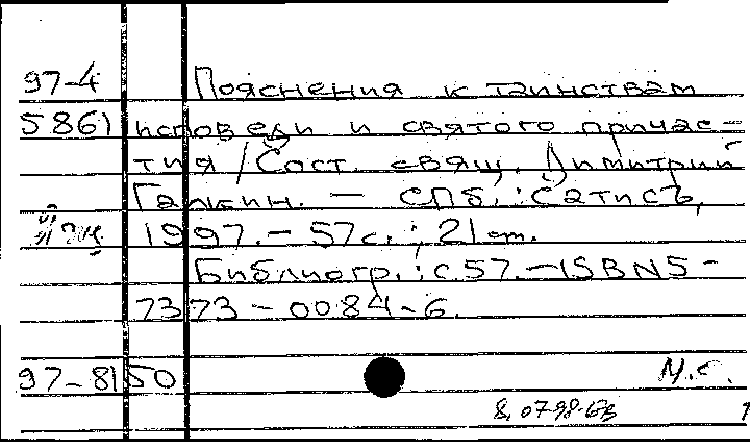 97-4 Пояснения к таинствам
5861 исповеди и святого причас-
тия / Сост. свящ. Димитрий
Галкин. — СПб. : Сатисъ,
1997. - 57 с. ; 21 см.
Библиогр.: с. 57. — ISBN 5-
7373-0084-6.
97-8150 М.С.